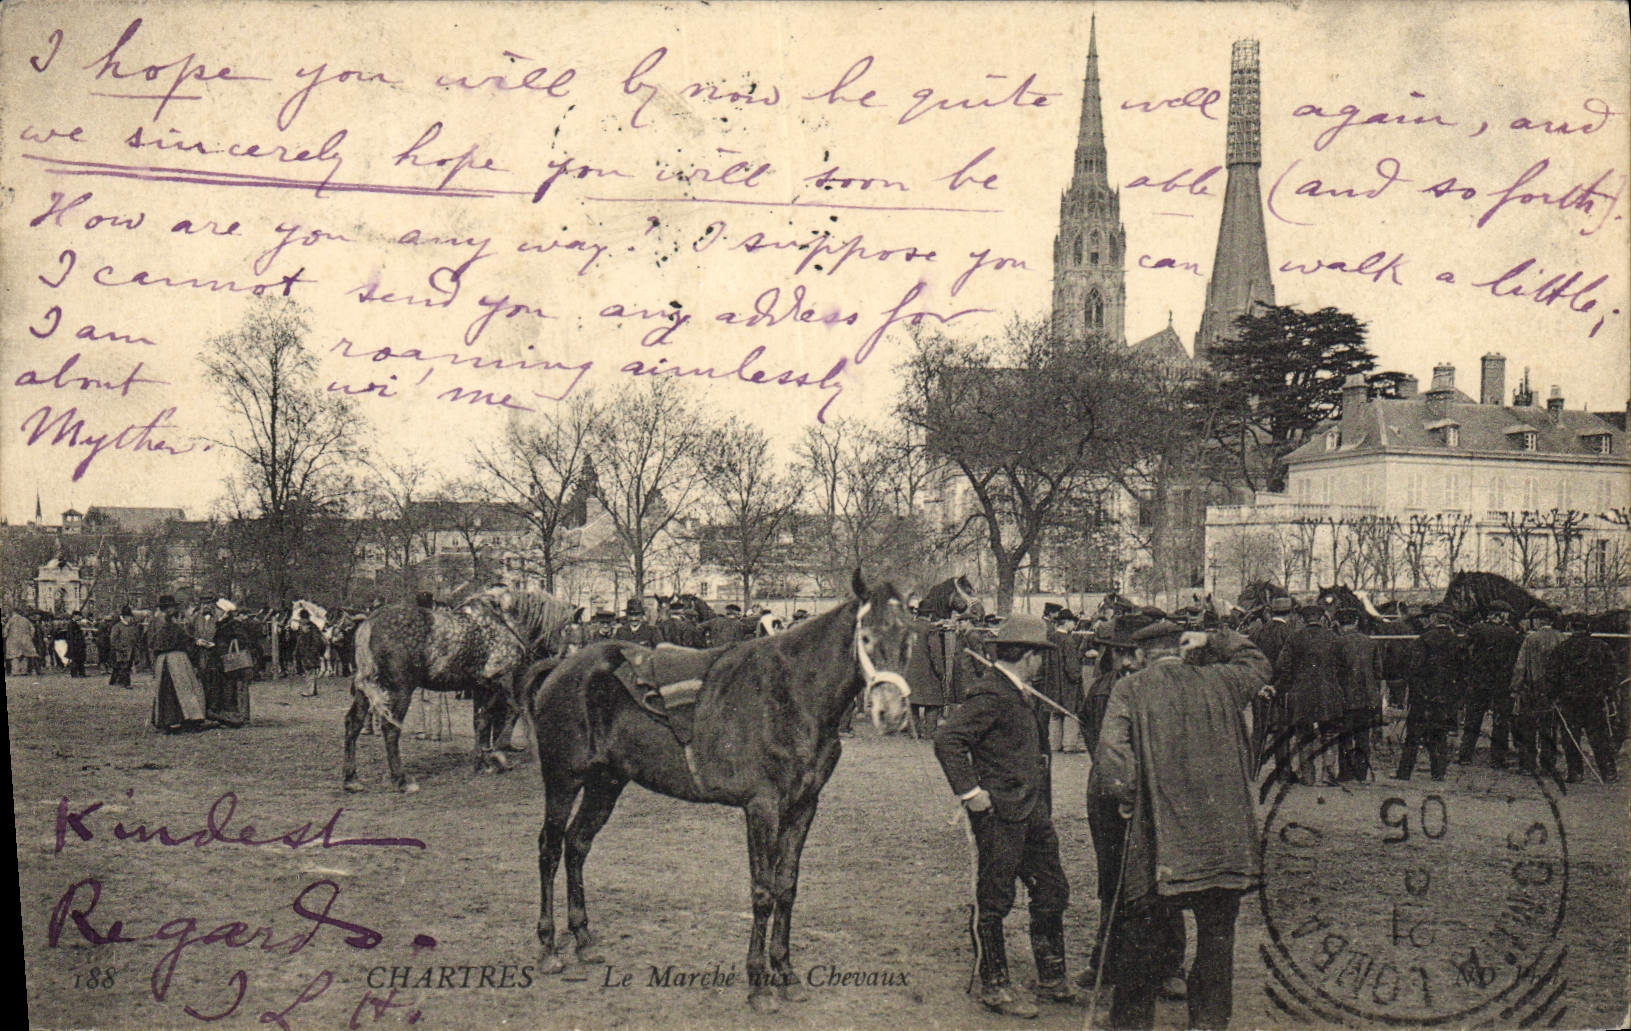 I hope you will by now be quite well again, and
we sincerely hope you will soon be able (and so forth).
How are you any way? I suppose you can walk a little;
I cannot send you any address for
I am roaming aimlessly
about wi' me
Myther.
Kindest
Regards.
I L H.
188 CHARTRES — Le Marché aux Chevaux ND Phot
05
21